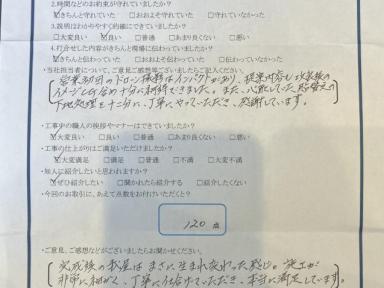 2.時間などのお約束が守れていましたか?
☑きちんと守れていた □おおよそ守れていた □守れていなかった
3.説明はわかりやすく的確にできていましたか?
□大変良い ☑良い □普通 □あまり良くない □悪い
4.打合せした内容がきちんと現場に伝わっていましたか?
☑きちんと伝わっていた □おおよそ伝わっていた □伝わっていなかった
・当社担当者について、ご意見ご感想等ございましたらご記入ください。
営業訪問のドローン撮影はインパクトがあり、提案内容も改装後の
イメージと合め十分に納得できました。また、心配していた
下地処理を十二分に、丁寧にやっていただき、感謝しています。
・工事中の職人の挨拶やマナーはできていましたか?
☑大変良い □良い □普通 □あまり良くない □悪い
・工事の仕上がりはご満足いただけましたか?
☑大変満足 □満足 □普通 □不満 □大変不満
・知人に紹介したいと思われますか?
☑ぜひ紹介したい □聞かれたら紹介する □紹介したくない
・今回のお取引に、あえて点数をお付けいただくと?
120 点
・ご意見、ご感想などがございましたらお聞かせください。
完成後の我家はまさに生まれ変わった感じ。施工が
非常に細かく、丁寧に仕上げていただき、本当に満足しています。